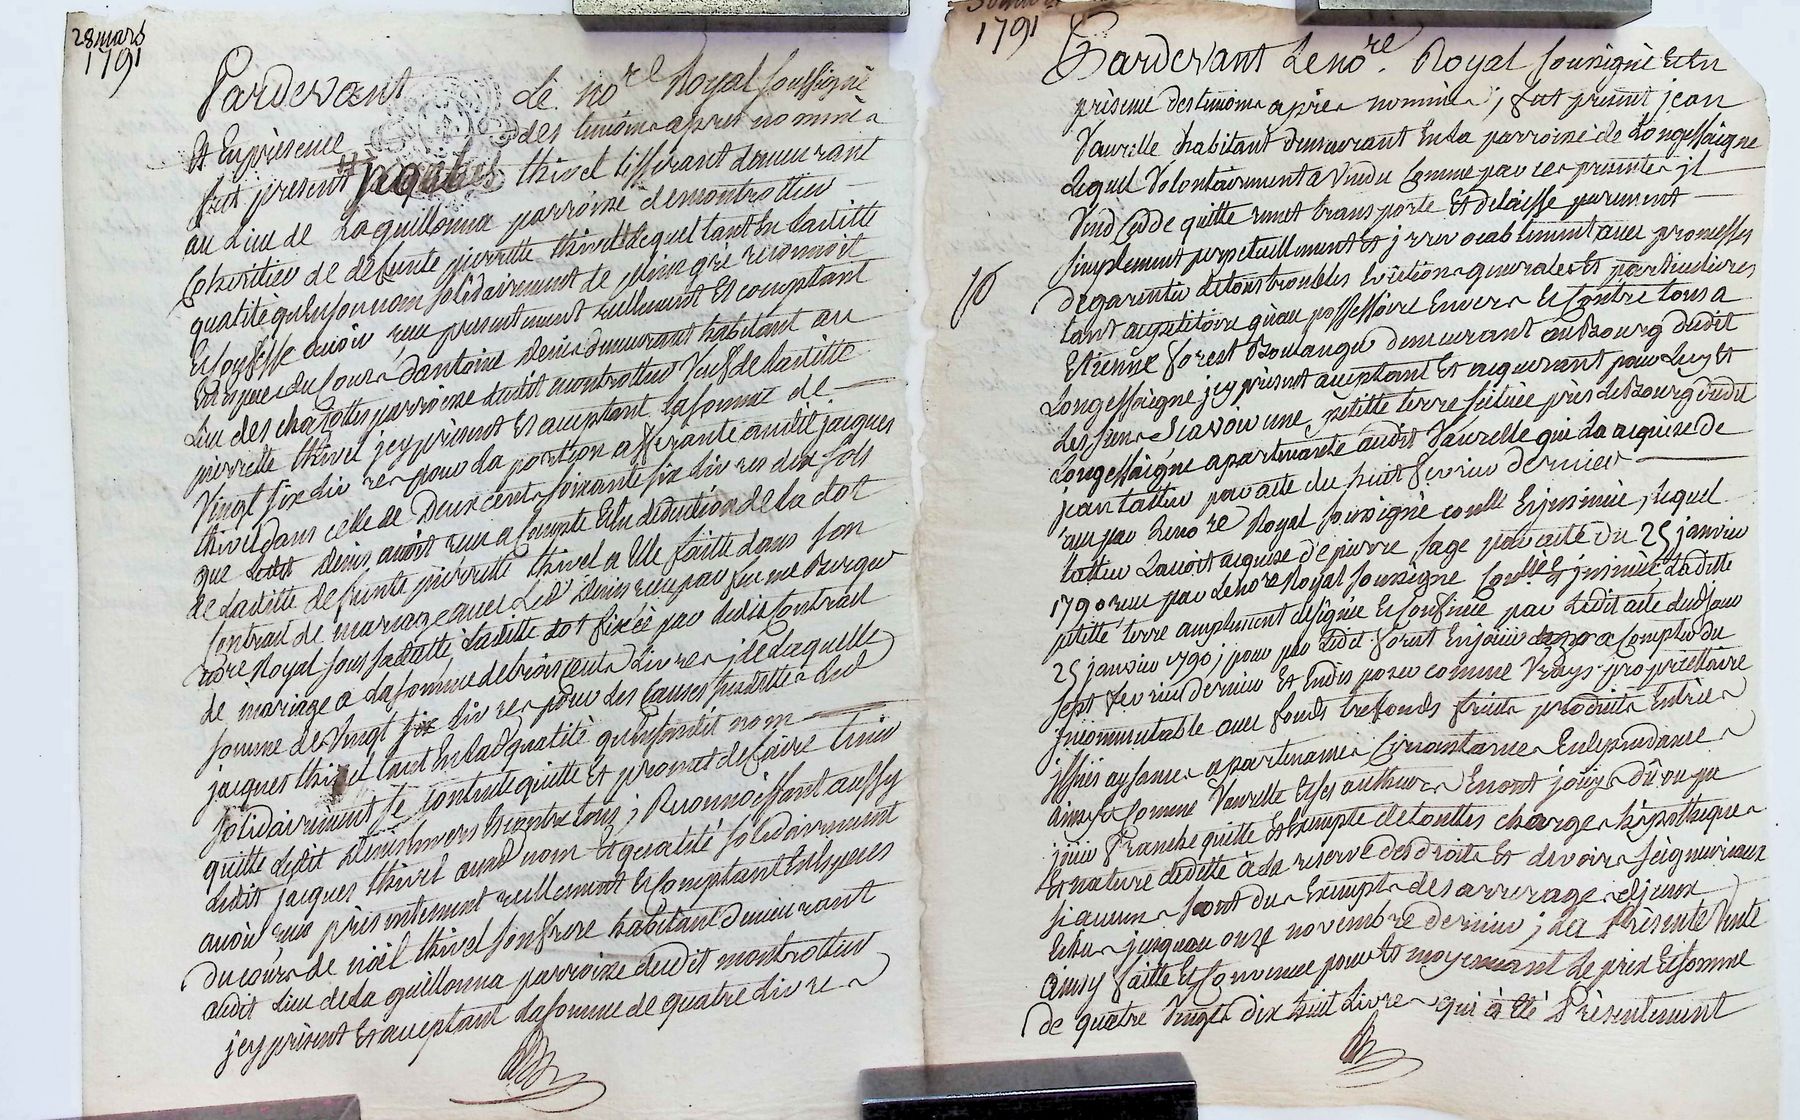 28 mars
1791
Pardevant Le no.re Royal soussigné
Et En présence des temoins après nommés
fut present Jacques thivel tisserant demeurant
au Lieu de La guillonna parroisse de montrottier
Cohéritier de défunte pierrette thivel Lequel tant En Laditte
qualité qu'En son nom solidairement de son gré reconnoit
Et confesse avoir reçu presentement reellement Et comptant
En Espèces du Cours d'antoine Denis demeurant habitant au
Lieu des charottes parroisse dudit montrottier Veuf de Laditte
pierrette thivel jcy présent Et acceptant La somme de
Vingt six Livres pour La portion afferante audit jacques
thivel dans celle de Deux cents soixante six Livres dix sols
que Ledit Denis avoit reçu a Compte Et En deduction de La dot
de Laditte defunte pierrette thivel a Elle faitte dans son
Contrat de mariage avec Led. Denis reçu par feu me Burger
nore Royal sous Laditte dot fixée par Ledit Contrat
de mariage a La somme de trois cents Livres ; de Laquelle
somme de Vingt six Livres pour les Causes susdittes Led
jacques thivel tant En Lad. qualité qu'En sondit nom
solidairement se contente quitte Et promet de faire tenir
quitte Ledit Denis Envers Et contre tous ; Reconnoissant aussy
Ledit jacques thivel auxd nom Et qualité solidairement
avoir reçu présentement reellement Et Comptant En Espèces
du cours de noël thivel son frère habitant demeurant
audit Lieu de La guillonna parroisse dudit montrottier
jcy présent Et acceptant La somme de quatre Livres
1791
Pardevant Le no.re Royal soussigné Et En
présence des temoins après nommés, fut présent jean
Vaurelle habitant demeurant En La parroisse de Longessaigne
Lequel Volontairement a Vendu Comme par ces présentes jl
Vend Cède quitte remet transporte Et delaisse purement
simplement perpetuellement Et jrrevocablement avec promesses
de garentie de tous troubles Evictions generales Et particulieres
tant au petitoire qu'au possessoire Envers Et Contre tous a
Etienne forest Boulanger demeurant au Bourg dudit
Longessaigne jcy présent acceptant Et acquerant pour Luy Et
Les siens Scavoir une petitte terre scituée près Le Bourg dudit
Longessaigne apartenante audit Vaurelle qui La acquise de
jean tattu par acte du huit fevrier dernier
reçu par Le nore Royal soussigné conllé Et jnsinué, Lequel
tattu L'avoit acquise de pierre Sage par acte du 25 janvier
1790 reçu par Le nore Royal soussigné Conllé Et jnsinué Laditte
petitte terre amplement désignée Et Confinée par Ledit acte dudjour
25 janvier 1790 ; pour par Ledit forest En jouir a Compter du
sept fevrier dernier Et En disposer comme Vrays propriettaire
jncommutable avec fonds trefonds fruits produits Entrées
jssües aysances apartenances Circonstances Et dependances
ainsy & Comme Vaurelle Et ses autheurs En ont jouy Dû ou pu
jouir franche quitte Et Exempte de touttes charges hipotheques
Et nature de dette à La reserve des droits Et devoirs seigneuriaux
si aucuns sont dus Exempts des arrerages d'jceux
Echus jusqu'au onze novembre dernier ; La Présente Vente
ainsy faitte Et Convenue pour Et moyennant Le prix Et somme
de quatre Vingt Dix huit Livres qui à Eté Présentement